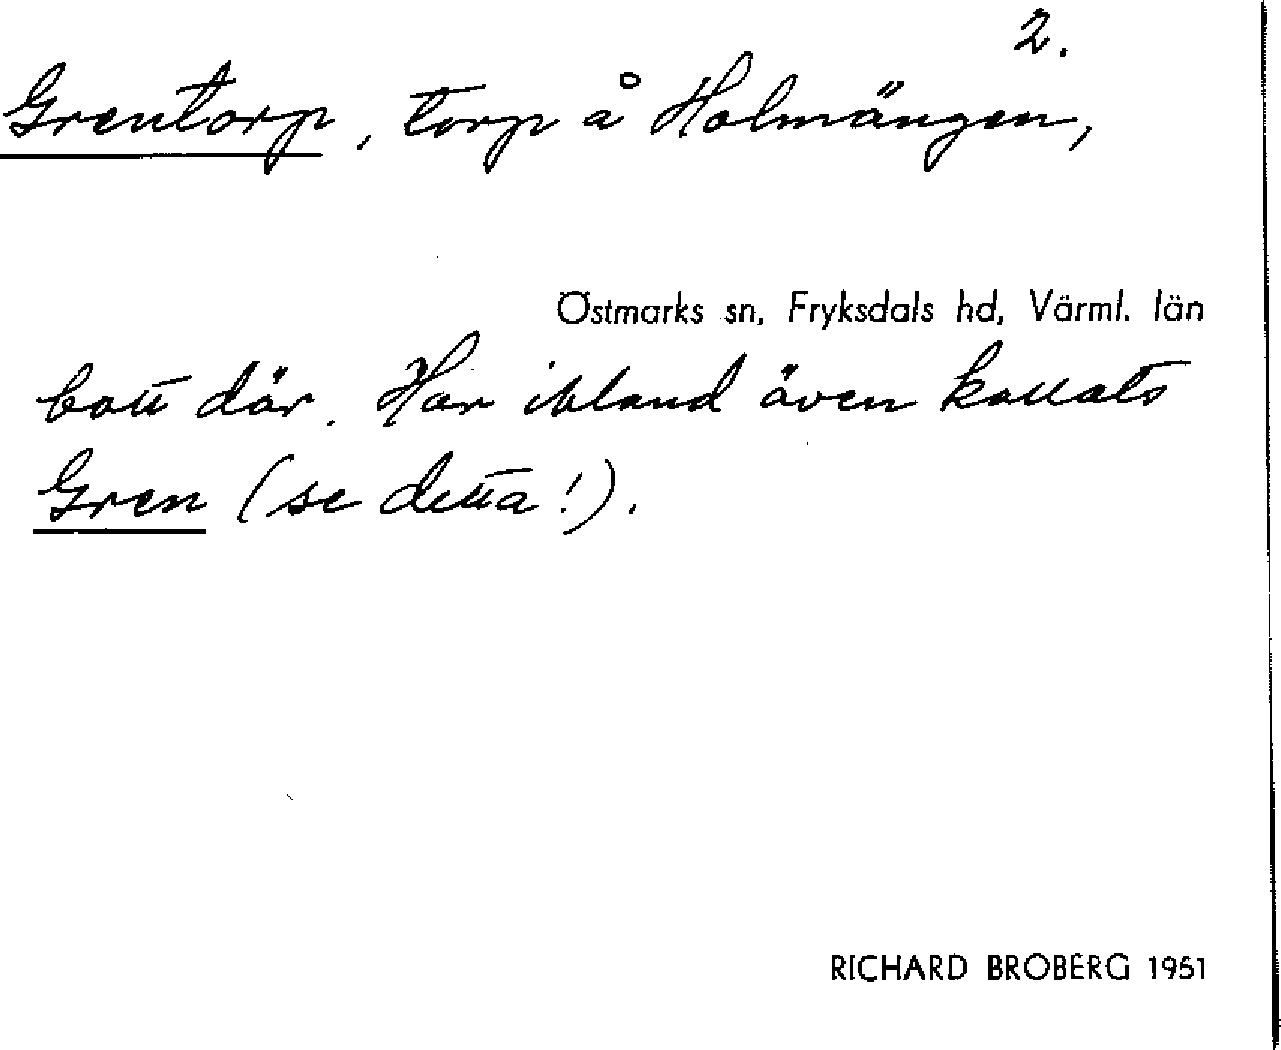 2.
Grentorp, torp å Holmängen,
Östmarks sn, Fryksdals hd, Värml. län
bott där. Har ibland även kallats
Gren (se detta!).
RICHARD BROBERG 1951